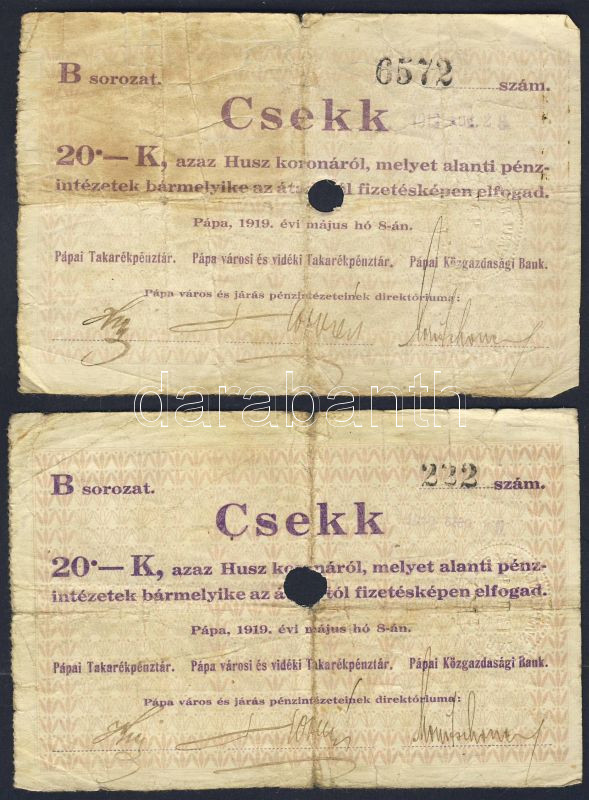 B sorozat. 6572 szám.
Csekk
20·— K, azaz Husz koronáról, melyet alanti pénz-
intézetek bármelyike az fizetésképen elfogad.
Pápa, 1919. évi május hó 8-án.
Pápai Takarékpénztár. Pápa városi és vidéki Takarékpénztár. Pápai Közgazdasági Bank.
Pápa város és járás pénzintézeteinek direktóriuma:
darabanth
B sorozat. 222 szám.
Csekk
20·— K, azaz Husz koronáról, melyet alanti pénz-
intézetek bármelyike az fizetésképen elfogad.
Pápa, 1919. évi május hó 8-án.
Pápai Takarékpénztár. Pápa városi és vidéki Takarékpénztár. Pápai Közgazdasági Bank.
Pápa város és járás pénzintézeteinek direktóriuma: